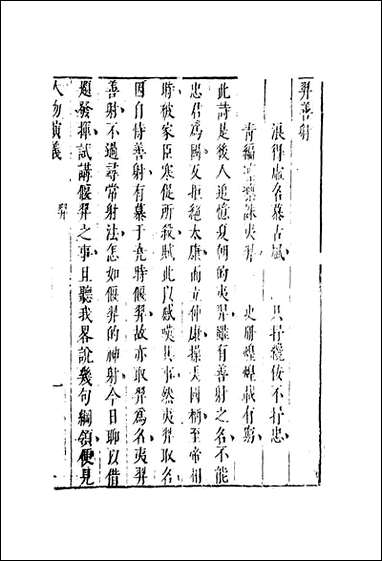 羿善射
浪得虛名慕古風 只行機伎不行忠
青編凜凜誅夷羿 史冊煌煌載有窮
此詩是後人追憶夏朝的夷羿雖有善射之名不能
忠君為國反拒絕太康而立仲康操夫國柄至帝相
時被家臣寒促所殺賦此以感嘆其事然夷羿取名
因自恃善射有慕于堯時偃羿故亦取羿為名夷羿
善射不過尋常射法怎如偃羿的神射今日聊以借
題發揮試講偃羿之事且聽我畧說幾句綱領便見
人物演義 羿 一